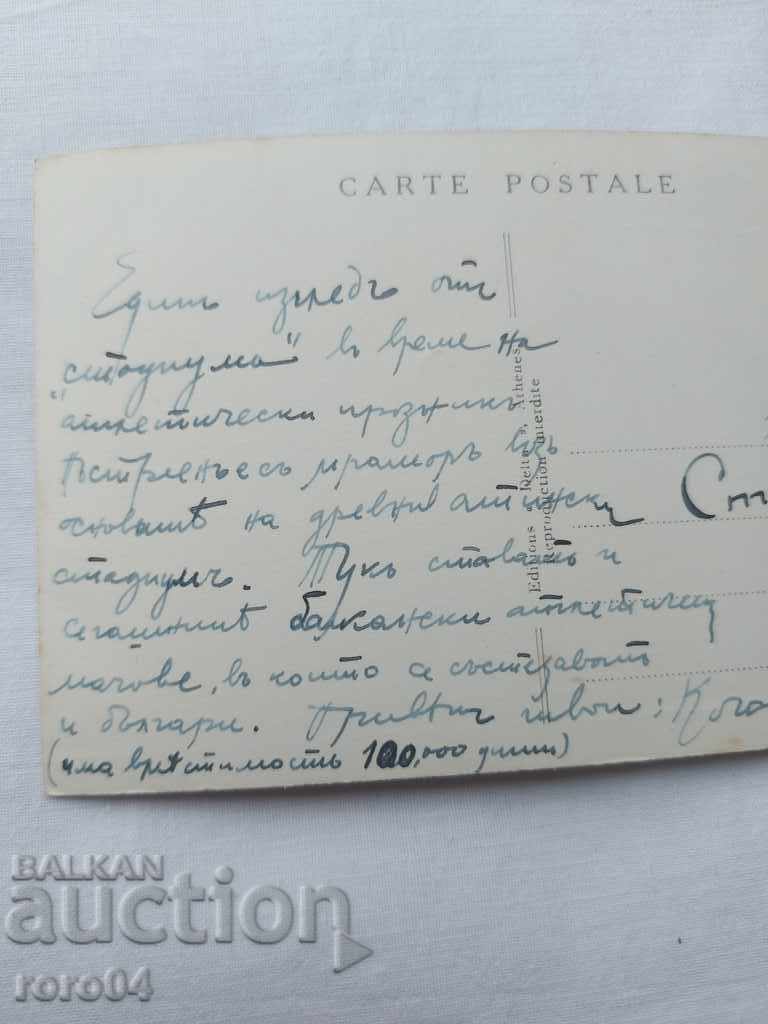 CARTE POSTALE
Единъ изгледъ отъ
"стадиума" въ време на
атлетически празникъ
Построенъ е съ мраморъ въ
основитѣ на древния атински
стадиумъ. Тукъ ставатъ и
сегашнитѣ балкански атлетически
мачове, въ които се състезаватъ
и българи. твои:
(има врѣстимость 100,000 души)
Editions Delta, Athenes
Reproduction interdite
BALKAN
auction
roro04